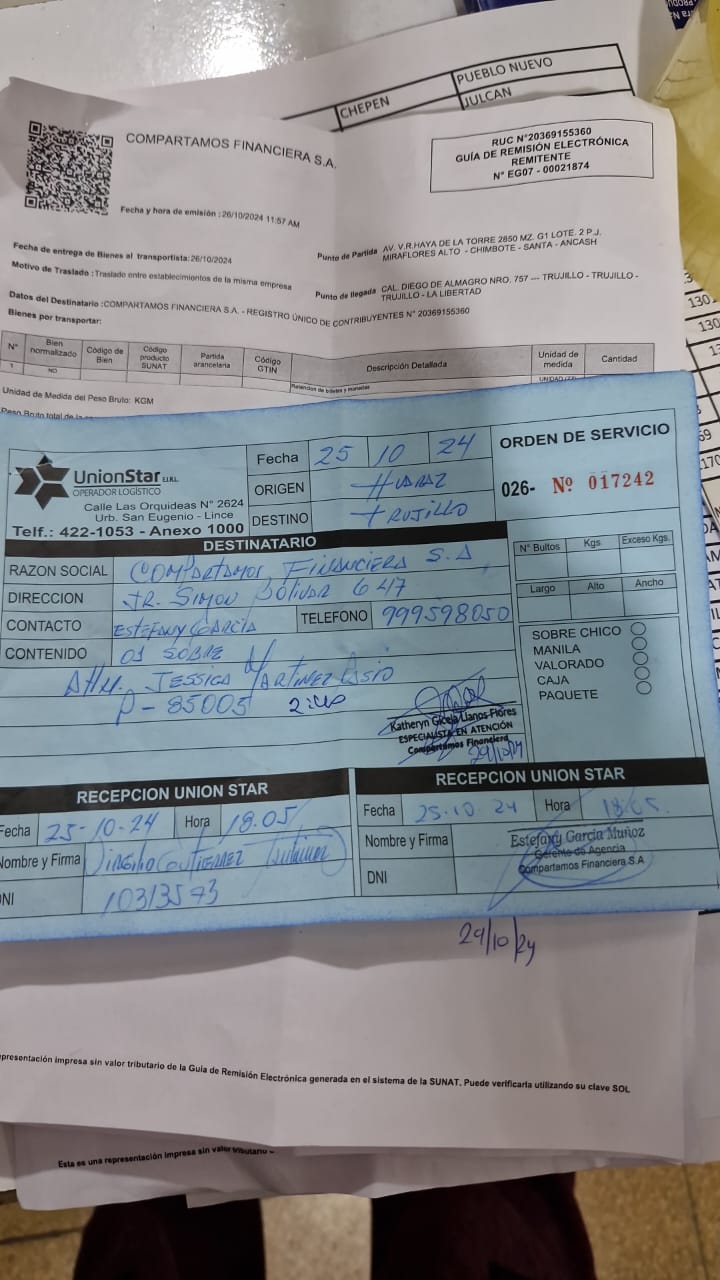 PUEBLO NUEVO
CHEPEN
JULCAN
COMPARTAMOS FINANCIERA S.A.
RUC N°20369155360
GUÍA DE REMISIÓN ELECTRÓNICA
REMITENTE
N° EG07 - 00021874
Fecha y hora de emisión : 26/10/2024 11:57 AM
Fecha de entrega de Bienes al transportista: 26/10/2024
Punto de Partida AV. V.R.HAYA DE LA TORRE 2850 MZ. G1 LOTE. 2 P.J.
MIRAFLORES ALTO - CHIMBOTE - SANTA - ANCASH
Motivo de Traslado : Traslado entre establecimientos de la misma empresa
Punto de llegada CAL. DIEGO DE ALMAGRO NRO. 757 --- TRUJILLO - TRUJILLO -
TRUJILLO - LA LIBERTAD
Datos del Destinatario : COMPARTAMOS FINANCIERA S.A. - REGISTRO ÚNICO DE CONTRIBUYENTES N° 20369155360
Bienes por transportar:
N° Bien normalizado Código de Bien Código producto SUNAT Partida arancelaria Código GTIN Descripción Detallada Unidad de medida Cantidad
1 NO
Unidad de Medida del Peso Bruto: KGM
UnionStar E.I.R.L.
OPERADOR LOGÍSTICO
Calle Las Orquideas N° 2624
Urb. San Eugenio - Lince
Telf.: 422-1053 - Anexo 1000
Fecha 25 10 24
ORIGEN HUARAZ
DESTINO TRUJILLO
ORDEN DE SERVICIO
026- N° 017242
DESTINATARIO
RAZON SOCIAL COMPARTAMOS FINANCIERA S.A
DIRECCION JR. SIMON BOLIVAR 647
CONTACTO ESTEFANY GARCIA TELEFONO 999598050
CONTENIDO 01 SOBRE
JESSICA MARTINEZ
P-85005
N° Bultos Kgs Exceso Kgs.
Largo Alto Ancho
SOBRE CHICO
MANILA
VALORADO
CAJA
PAQUETE
Katheryn Gicela Llanos Flores
ESPECIALISTA EN ATENCIÓN
Compartamos Financiera
29/10/24
RECEPCION UNION STAR
Fecha 25-10-24 Hora 18.05
Nombre y Firma GUTIERREZ
DNI 10313573
RECEPCION UNION STAR
Fecha 25.10 24 Hora 18.05.
Nombre y Firma Estefany Garcia Muñoz
Gerente de Agencia
Compartamos Financiera S.A
DNI
29/10/24
presentación impresa sin valor tributario de la Guía de Remisión Electrónica generada en el sistema de la SUNAT. Puede verificarla utilizando su clave SOL
Esta es una representación impresa sin valor tributario